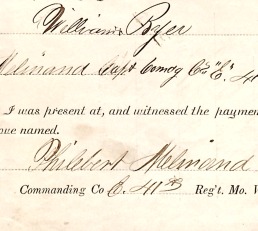 William Byer
Melinand Capt Comdg Co "E" 41
I was present at, and witnessed the payment
ove named.
Philibert Melinand
Commanding Co E. 41st Reg't. Mo. V